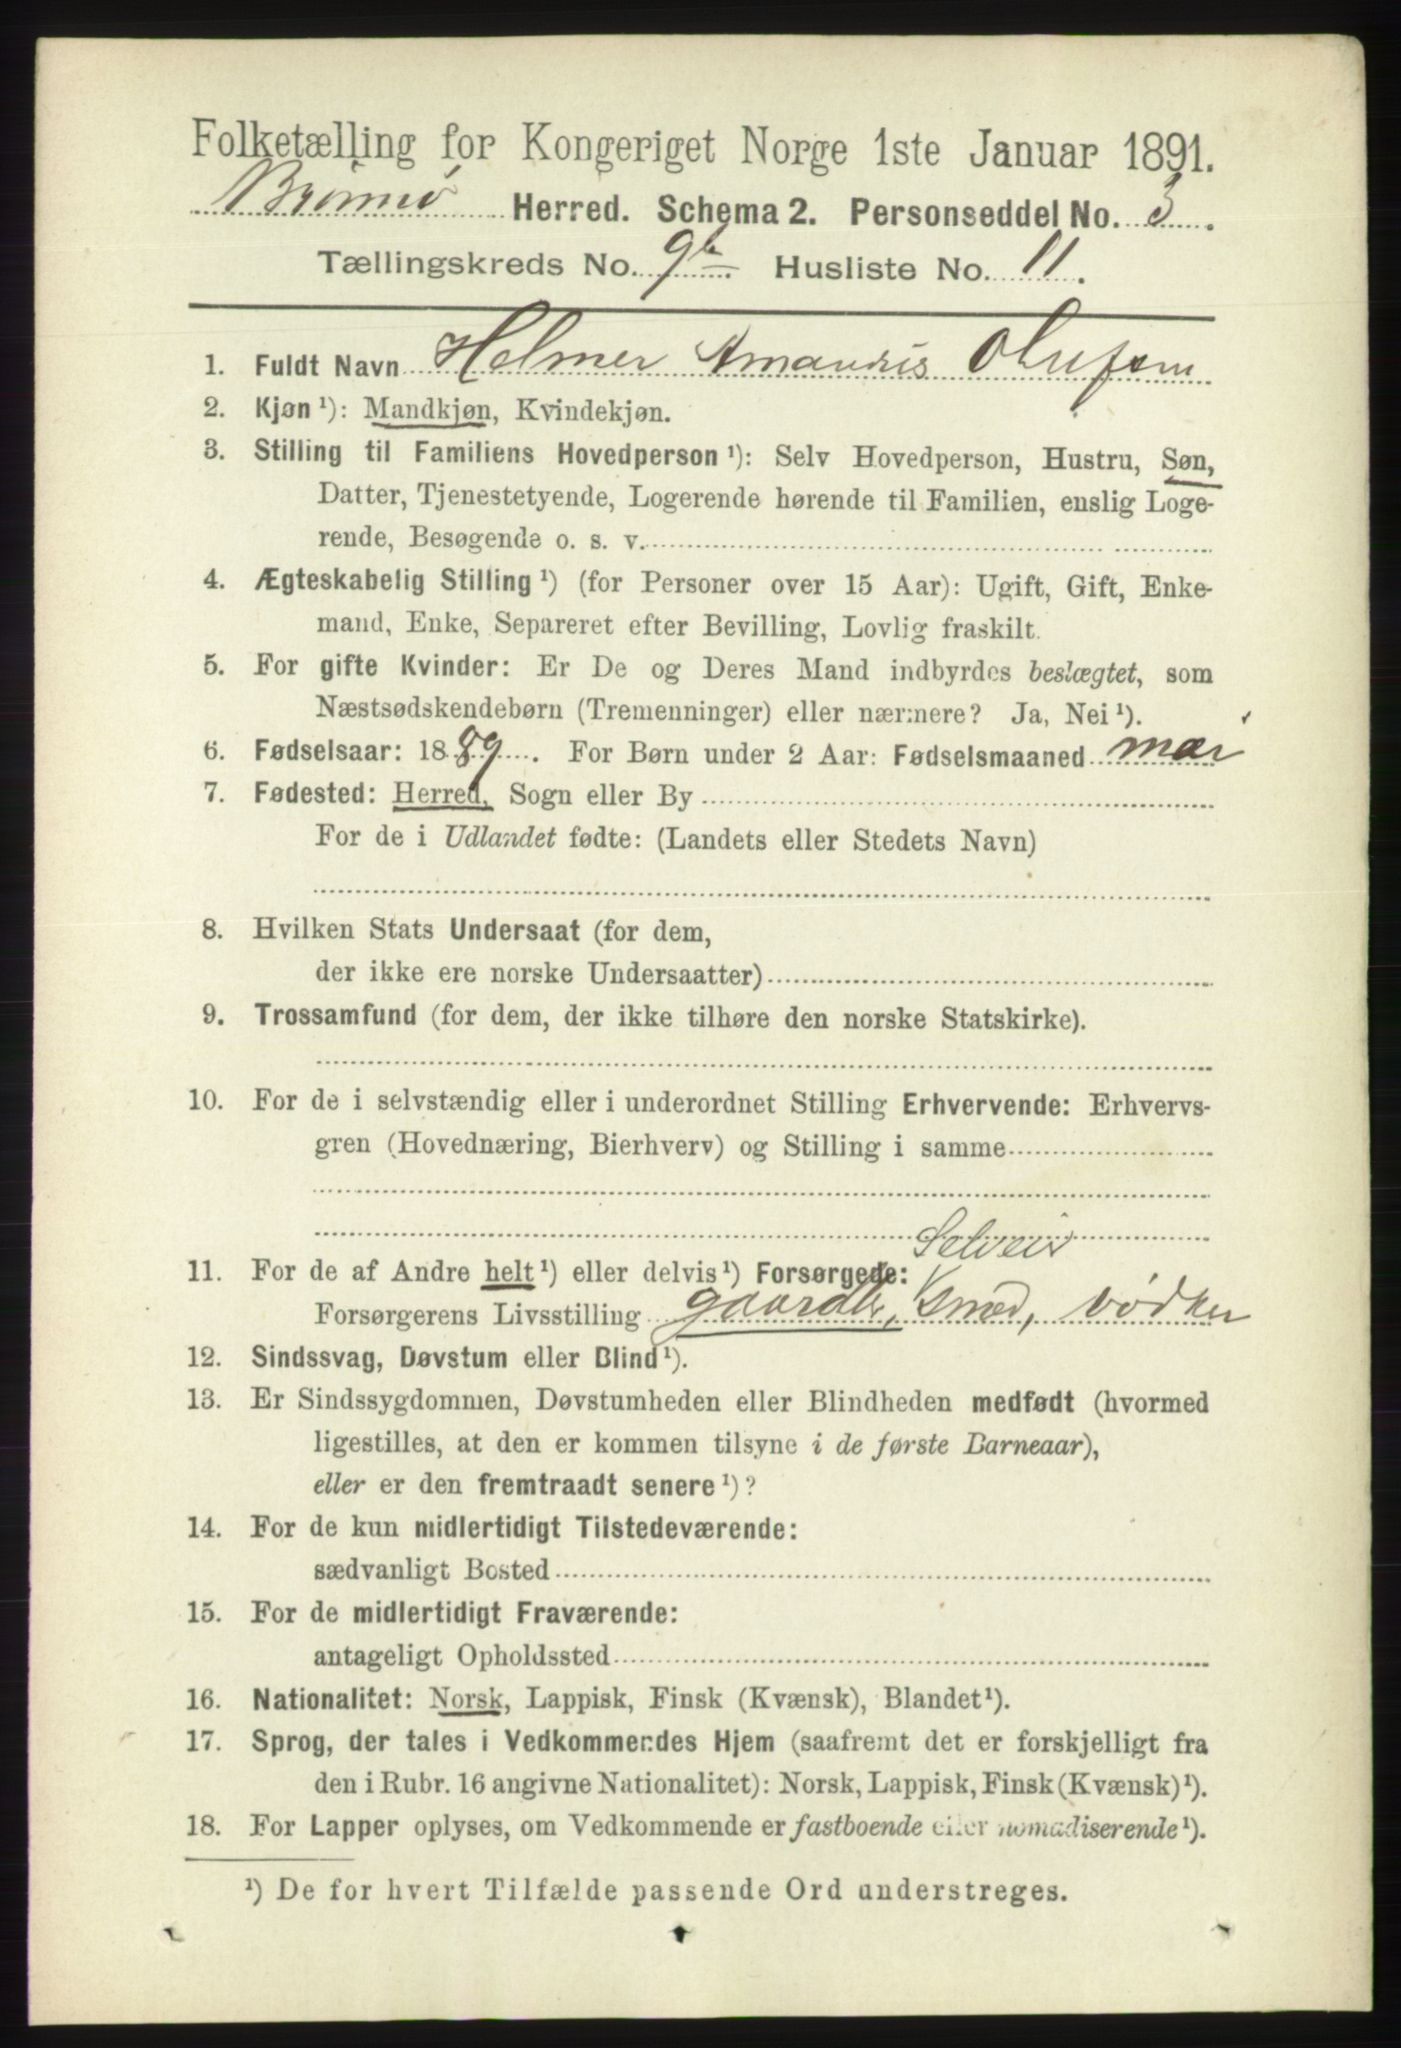 Folketælling for Kongeriget Norge 1ste Januar 1891.
Brønnø Herred. Schema 2. Personseddel No. 3.
Tællingskreds No. 9b. Husliste No. 11.
1. Fuldt Navn Helmer Amandus Olufsen
2. Kjøn ¹): Mandkjøn, Kvindekjøn.
3. Stilling til Familiens Hovedperson ¹): Selv Hovedperson, Hustru, Søn,
Datter, Tjenestetyende, Logerende hørende til Familien, enslig Loge-
rende, Besøgende o. s. v.
4. Ægteskabelig Stilling ¹) (for Personer over 15 Aar): Ugift, Gift, Enke-
mand, Enke, Separeret efter Bevilling, Lovlig fraskilt.
5. For gifte Kvinder: Er De og Deres Mand indbyrdes beslægtet, som
Næstsødskendebørn (Tremenninger) eller nærmere? Ja, Nei ¹).
6. Fødselsaar: 1889. For Børn under 2 Aar: Fødselsmaaned mar
7. Fødested: Herred, Sogn eller By
For de i Udlandet fødte: (Landets eller Stedets Navn)
8. Hvilken Stats Undersaat (for dem,
der ikke ere norske Undersaatter)
9. Trossamfund (for dem, der ikke tilhøre den norske Statskirke).
10. For de i selvstændig eller i underordnet Stilling Erhvervende: Erhvervs-
gren (Hovednæring, Bierhverv) og Stilling i samme
Selveir
11. For de af Andre helt ¹) eller delvis ¹) Forsørgede:
Forsørgerens Livsstilling gaardbr, Smed, bødker
12. Sindssvag, Døvstum eller Blind ¹).
13. Er Sindssygdommen, Døvstumheden eller Blindheden medfødt (hvormed
ligestilles, at den er kommen tilsyne i de første Barneaar),
eller er den fremtraadt senere ¹)?
14. For de kun midlertidigt Tilstedeværende:
sædvanligt Bosted
15. For de midlertidigt Fraværende:
antageligt Opholdssted
16. Nationalitet: Norsk, Lappisk, Finsk (Kvænsk), Blandet ¹).
17. Sprog, der tales i Vedkommendes Hjem (saafremt det er forskjelligt fra
den i Rubr. 16 angivne Nationalitet): Norsk, Lappisk, Finsk (Kvænsk) ¹).
18. For Lapper oplyses, om Vedkommende er fastboende eller nomadiserende ¹).
¹) De for hvert Tilfælde passende Ord understreges.